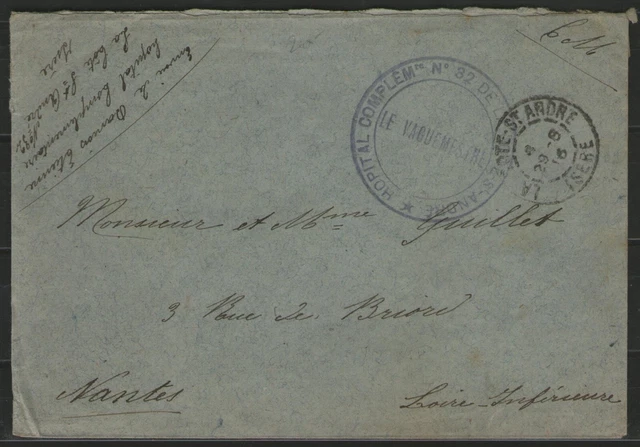 Envoi de Étienne
hopital Complémentaire N° 92
La Cote St André
Isère
C M
HOPITAL COMPLÉMre N° 92 DE ST-ANDRÉ
LE VAGUEMESTRE
LA COTE-ST ANDRÉ
ISÈRE
29-6
16
Monsieur et Mme Guillet
3 Rue de Briord
Nantes
Loire-Inférieure